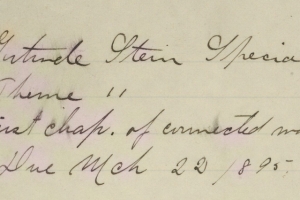 Gertrude Stein Specia
Theme "
First chap. of connected wo
Due Mch 22 1895.